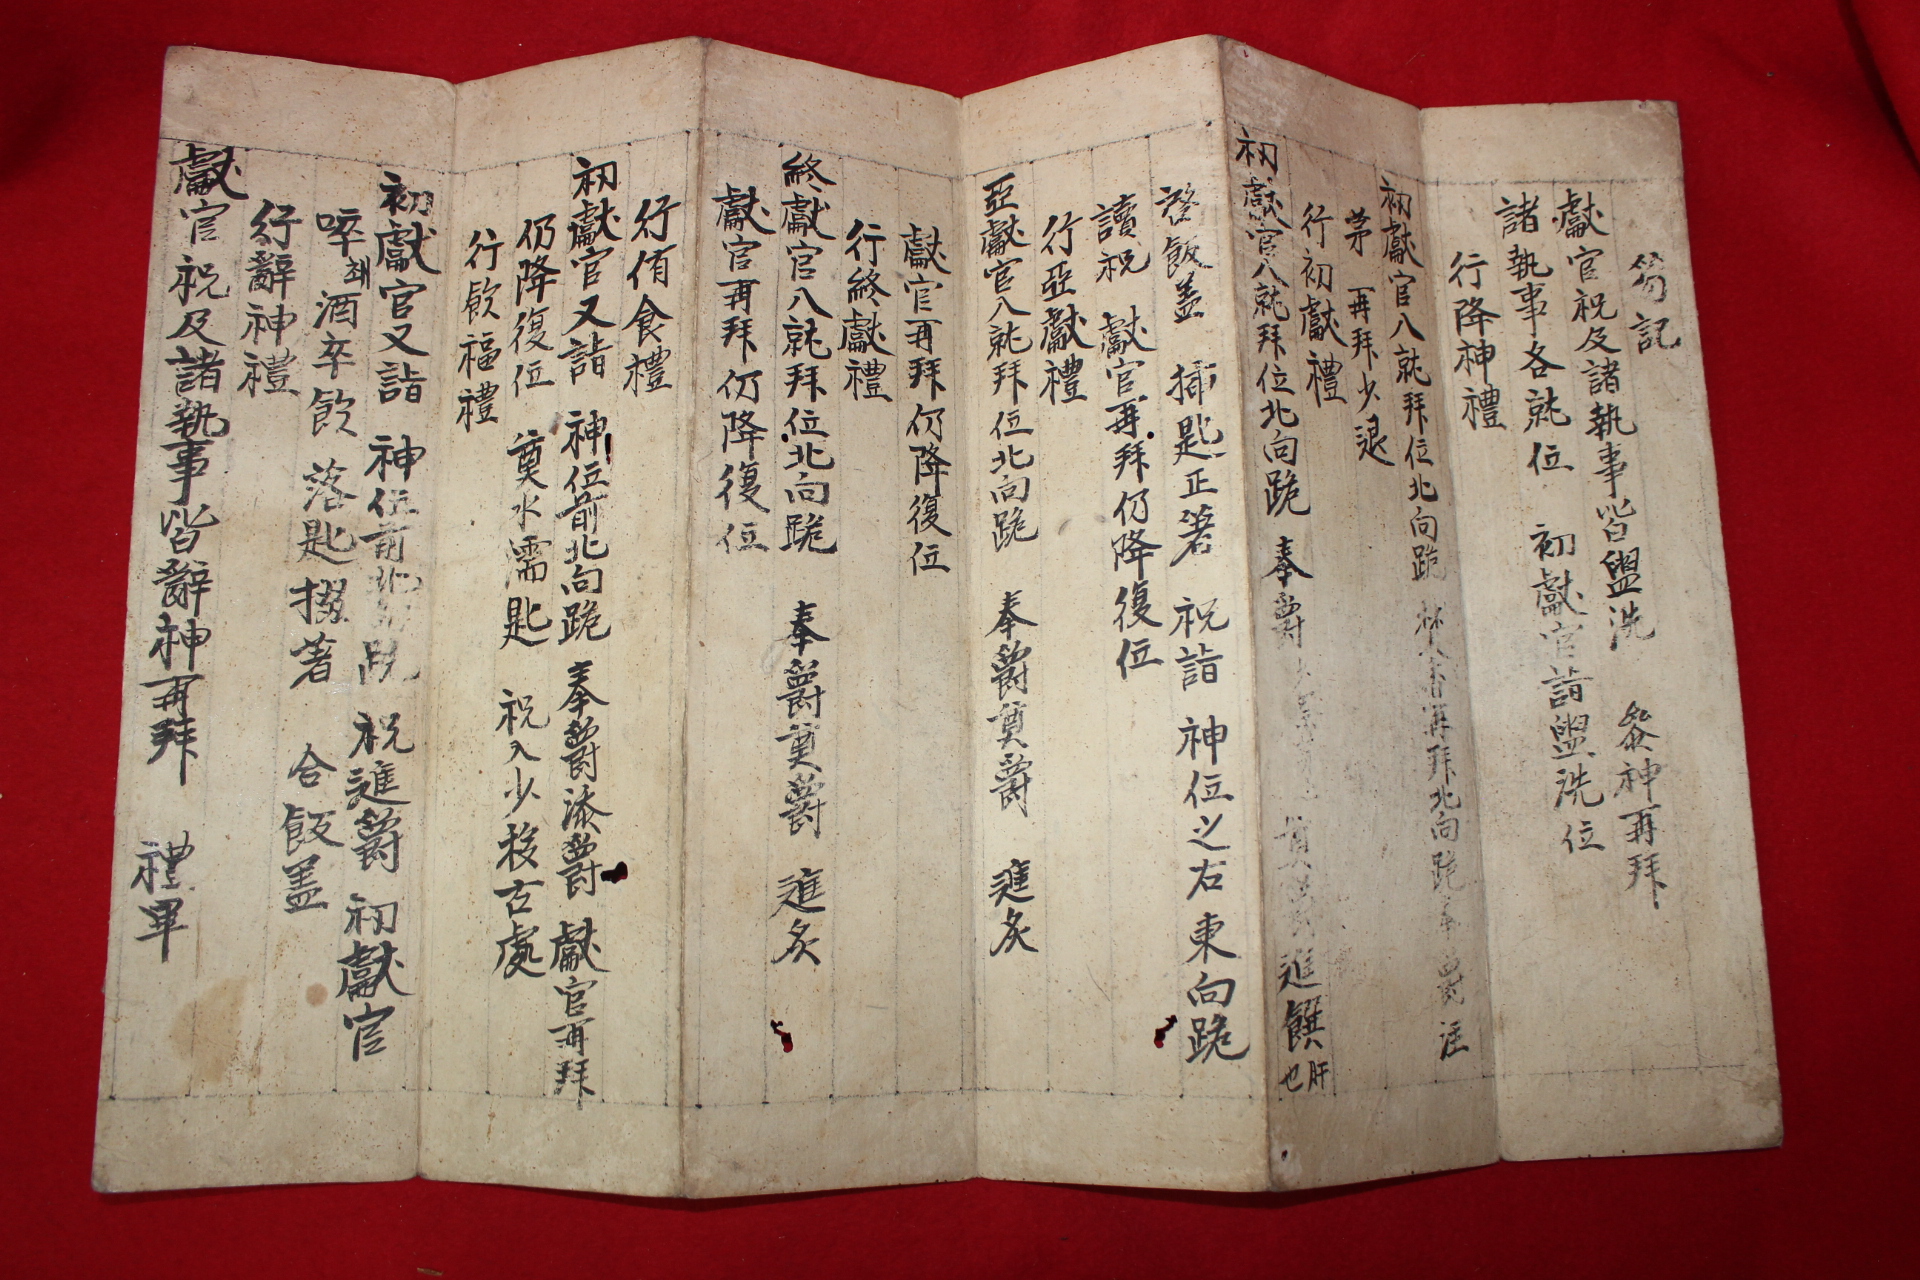 笏記
獻官祝及諸執事皆盥洗 叅神再拜
諸執事各就位 初獻官詣盥洗位
行降神禮
初獻官入就拜位北向跪 焚香再拜北向跪 奉爵 注
茅 再拜少退
行初獻禮
初獻官入就拜位北向跪 奉爵 奠爵 進饌肝也
啓飯盖 揷匙正箸 祝詣 神位之右東向跪
讀祝 獻官再拜仍降復位
行亞獻禮
亞獻官入就拜位北向跪 奉爵奠爵 進炙
獻官再拜仍降復位
行終獻禮
終獻官入就拜位北向跪 奉爵奠爵 進炙
獻官再拜仍降復位
行侑食禮
初獻官又詣 神位前北向跪 奉爵添爵 獻官再拜
仍降復位 奠水濡匙 祝入少移古處
行飮福禮
初獻官又詣 神位前北向跪 祝進爵 初獻官
啐쵀酒卒飮 落匙掇箸 合飯盖
行辭神禮
獻官祝及諸執事皆辭神再拜 禮畢